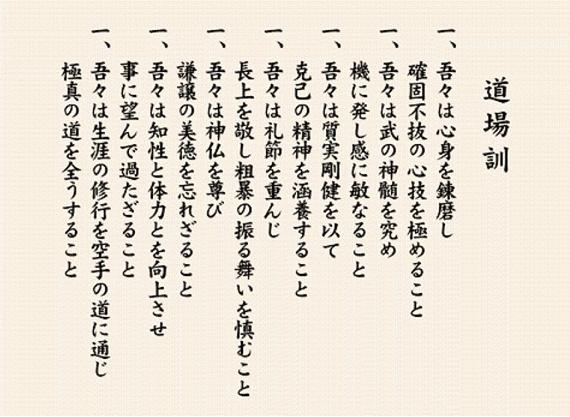 道場訓
一、吾々は心身を錬磨し
確固不抜の心技を極めること
一、吾々は武の神髄を究め
機に発し感に敏なること
一、吾々は質実剛健を以て
克己の精神を涵養すること
一、吾々は礼節を重んじ
長上を敬し粗暴の振る舞いを慎むこと
一、吾々は神仏を尊び
謙譲の美徳を忘れざること
一、吾々は知性と体力とを向上させ
事に望んで過たざること
一、吾々は生涯の修行を空手の道に通じ
極真の道を全うすること